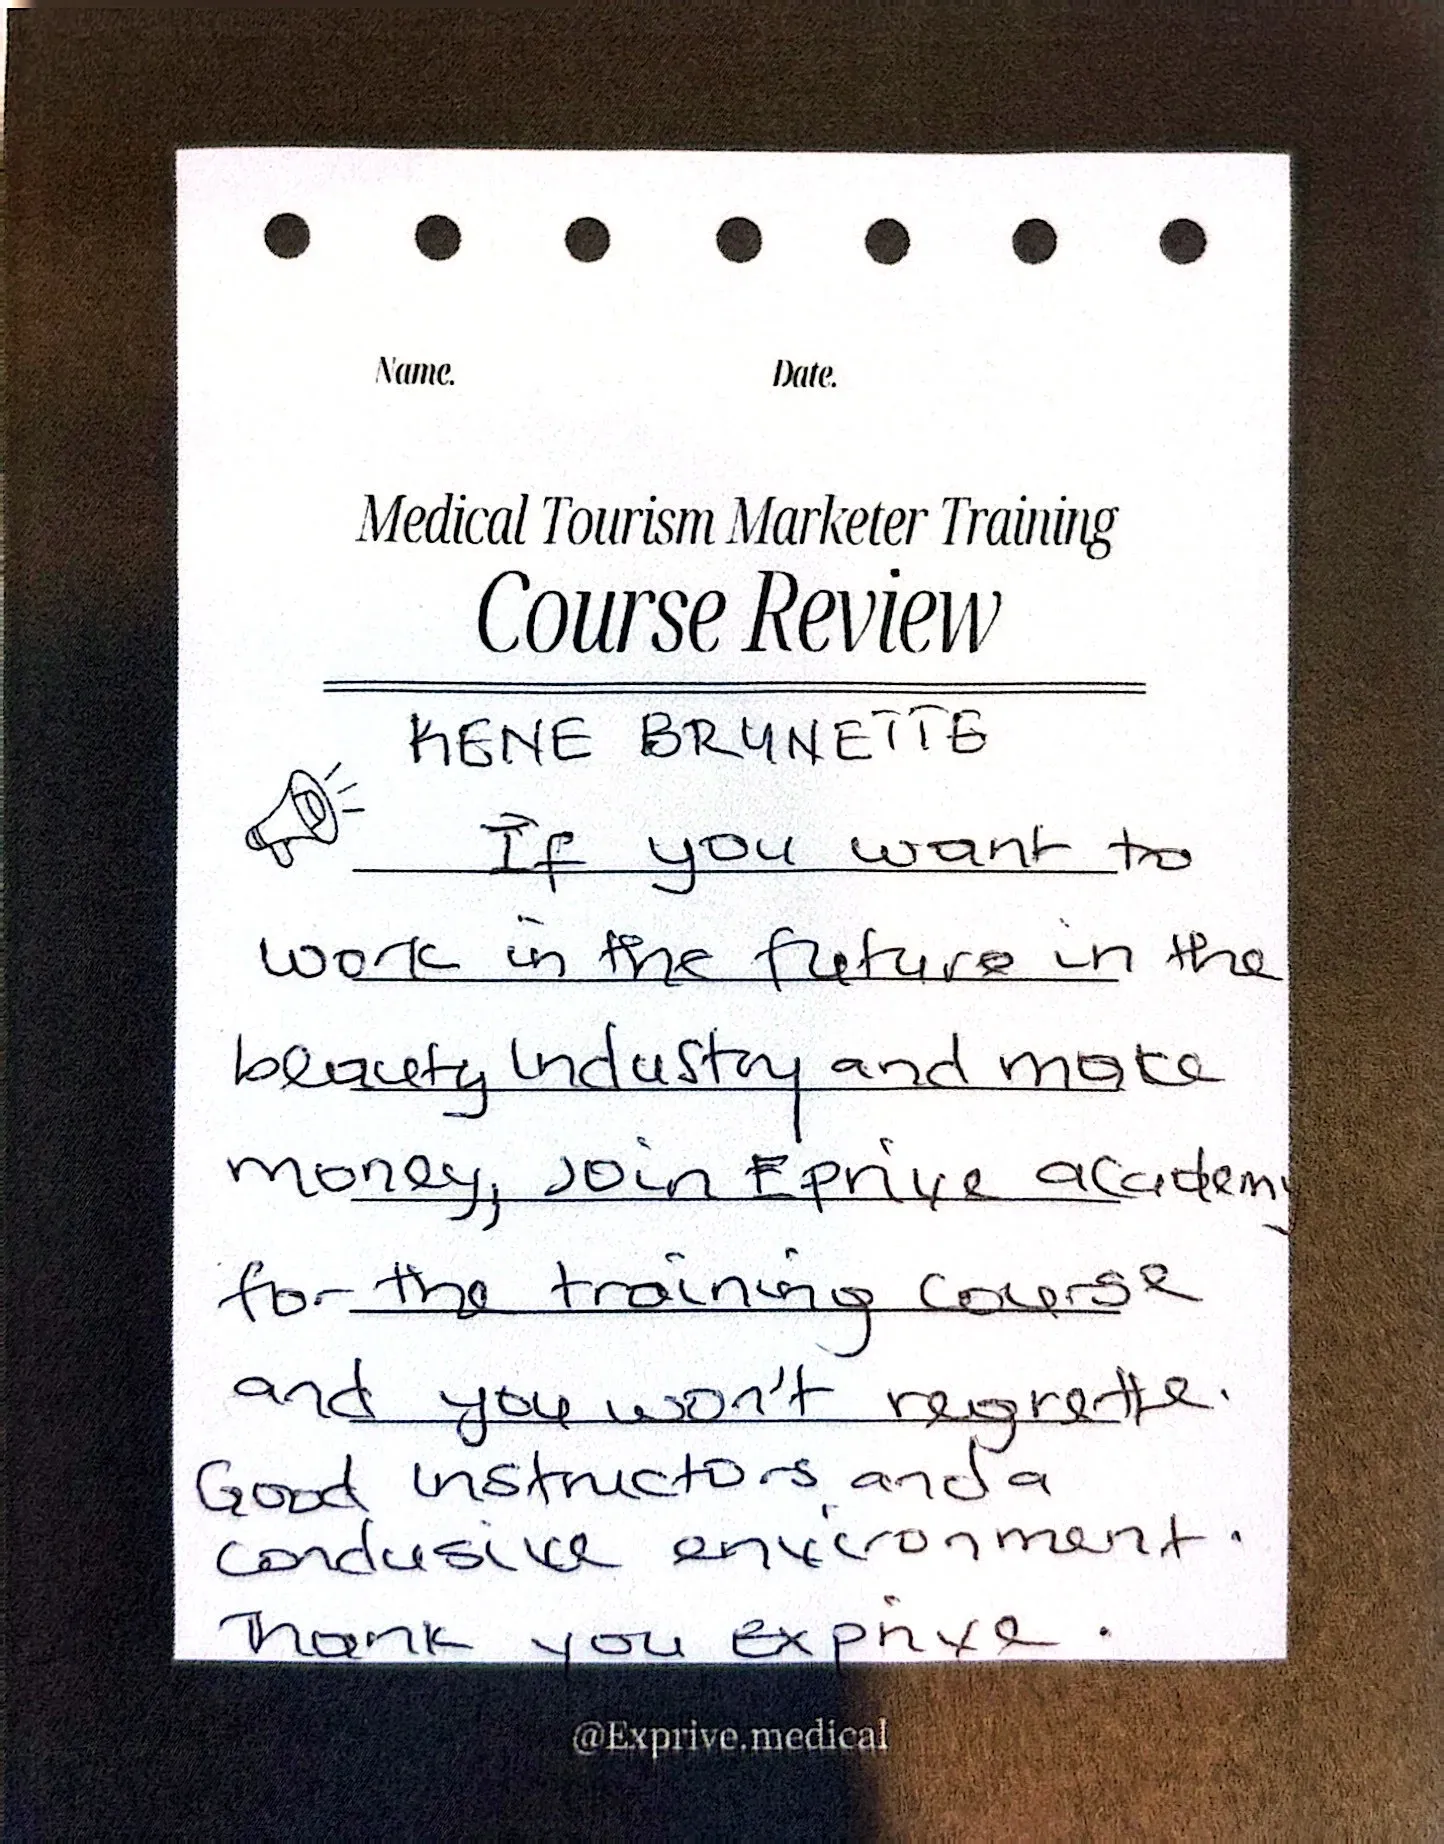 Name. Date.
Medical Tourism Marketer Training
Course Review
KENE BRUNETTE
If you want to
work in the future in the
beauty industry and make
money, Join Eprive academy
for the training course
and you won't regrette.
Good instructors and a
condusive environment.
Thank you Exprive.
@Exprive.medical